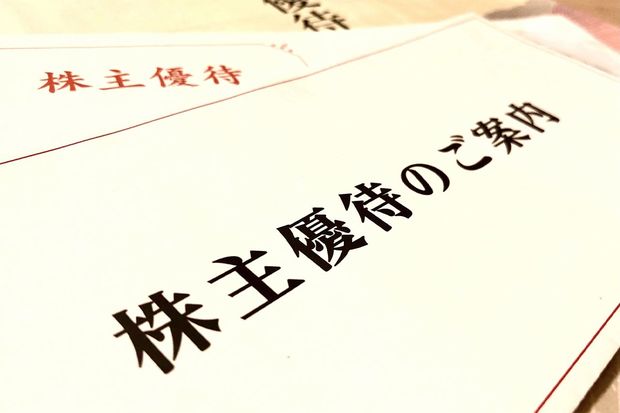 優待
株主優待
株主優待のご案内